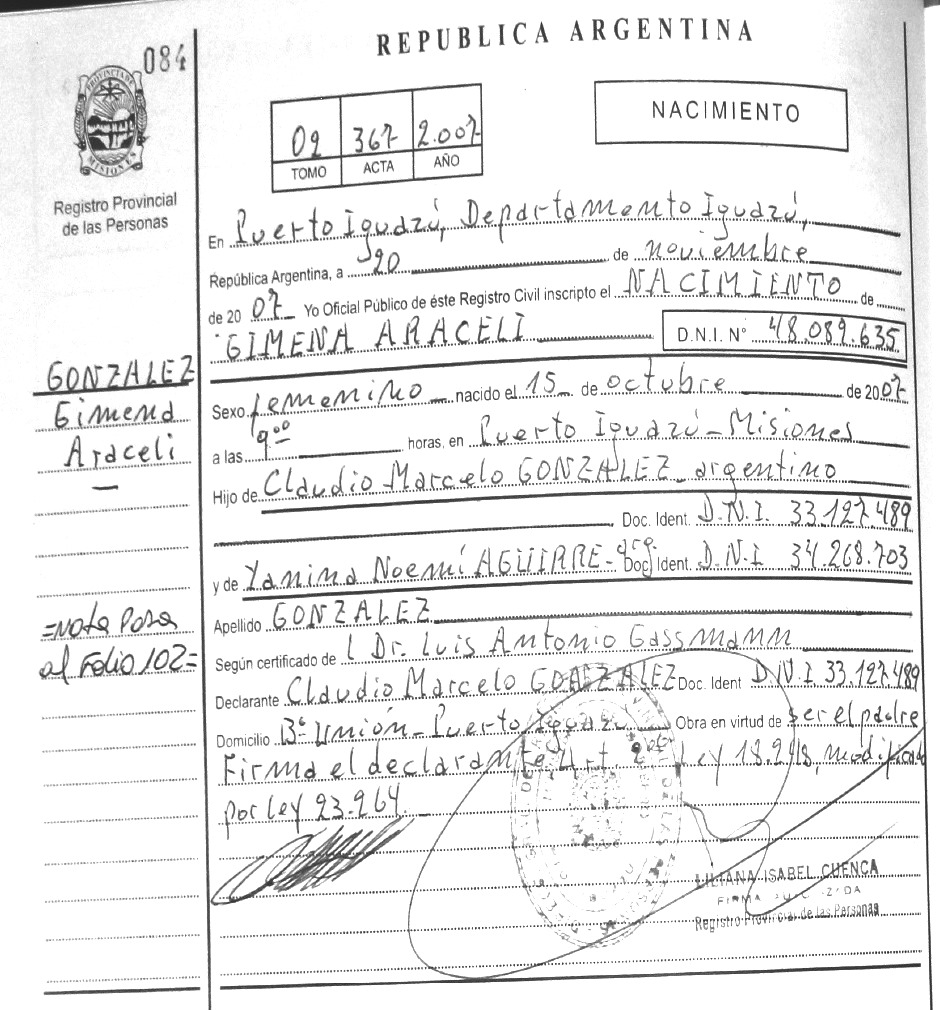 REPUBLICA ARGENTINA
084
PROVINCIA DE
MISIONES
Registro Provincial
de las Personas
02 367 2.007
TOMO ACTA AÑO
NACIMIENTO
En Puerto Iguazú, Departamento Iguazú,
República Argentina, a 20 de noviembre
de 20 07 Yo Oficial Público de éste Registro Civil inscripto el NACIMIENTO de
GIMENA ARACELI D.N.I. N° 48.089.635
GONZALEZ
Gimena
Araceli
Sexo femenino nacido el 15 de octubre de 2007
a las 9.00 horas, en Puerto Iguazú - Misiones
Hijo de Claudio Marcelo GONZALEZ - argentino
Doc. Ident. D.N.I. 33.127.489
y de Yanina Noemí AGUIRRE - arg. Doc. Ident. D.N.I 34.268.703
Apellido GONZALEZ
=Nota Pasa
al Folio 102=
Según certificado de Dr. Luis Antonio Gassmann
Declarante Claudio Marcelo GONZALEZ Doc. Ident D.N.I 33.127.489
Domicilio B° Unión - Puerto Iguazú Obra en virtud de ser el padre
Firma el declarante Art. Ley 18.248, modificada
por Ley 23.264.
LILIANA ISABEL CUENCA
FIRMA
Registro Provincial de las Personas